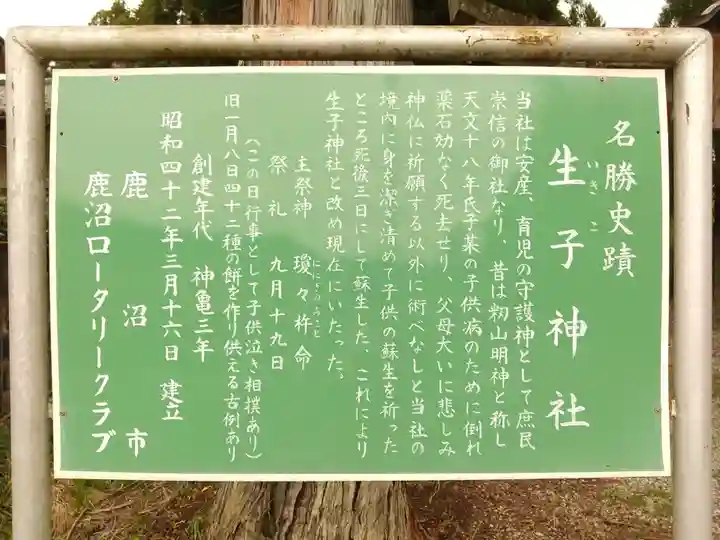 名勝史蹟
生子神社
いきこ
当社は安産、育児の守護神として庶民
崇信の御社なり、昔は籾山明神と称し
天文十八年氏子某の子供病のために倒れ
薬石効なく死去せり、父母大いに悲しみ
神仏に祈願する以外に術べなしと当社の
境内に身を潔ぎ清めて子供の蘇生を祈った
ところ死後三日にして蘇生した、これにより
生子神社と改め現在にいたった。
主祭神 瓊々杵命
ににぎのみこと
祭礼 九月十九日
旧一月八日四十二種の餅を作り供える古例あり
(この日行事として子供泣き相撲あり)
創建年代 神亀三年
昭和四十二年三月十六日 建立
鹿沼市
鹿沼ロータリークラブ